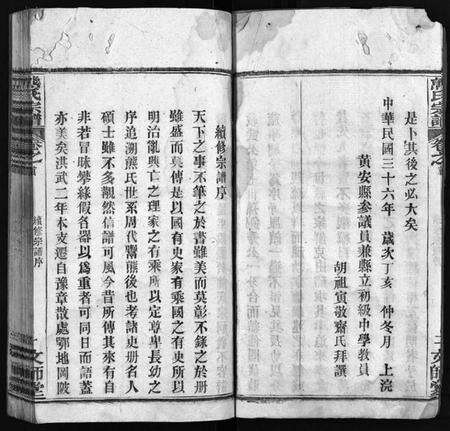 是卜其後之必大矣
中華民國三十六年 歲次丁亥 仲冬月 上浣
黃安縣參議員兼縣立初級中學教員
胡祖寅敬齋氏拜撰
續修宗譜序
天下之事不筆之於書雖美而莫彰不錄之於册
雖盛而莫傳是以國有史家有乘國之有史所以
明治亂興亡之理家之有乘所以定尊卑長幼之
序追溯熊氏世系周代鬻熊後也考諸史册名人
碩士雖不多觀然信譜可風今昔所傳其來有自
非若冒昧攀緣假名器以為重者可同日而語蓋
亦美矣洪武二年本支遷自豫章散處鄂地岡陂
續修宗譜序